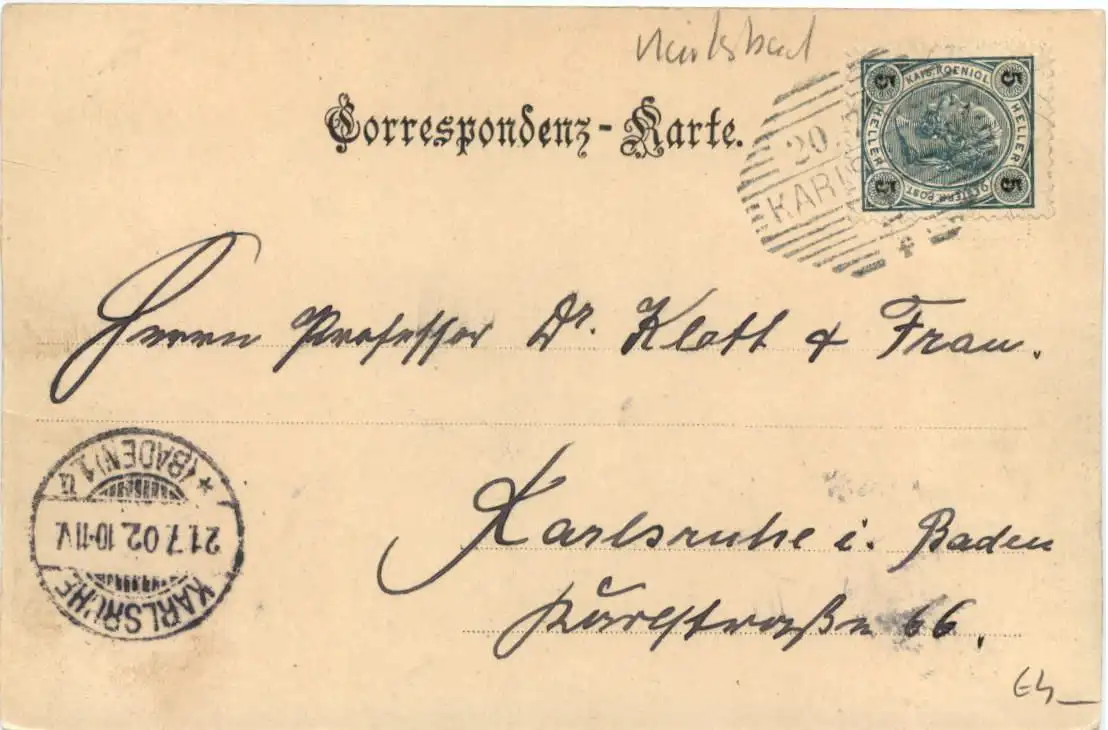 Correspondenz-Karte.
5 KAIS. KOENIGL. 5
HELLER HELLER
5 OESTERR. POST 5
20
KARLS
Herrn Professor Dr. Klett & Frau.
Karlsruhe i. Baden
Karlstraße 66.
KARLSRUHE
21.7.02. 10-11V.
* (BADEN) 1. a